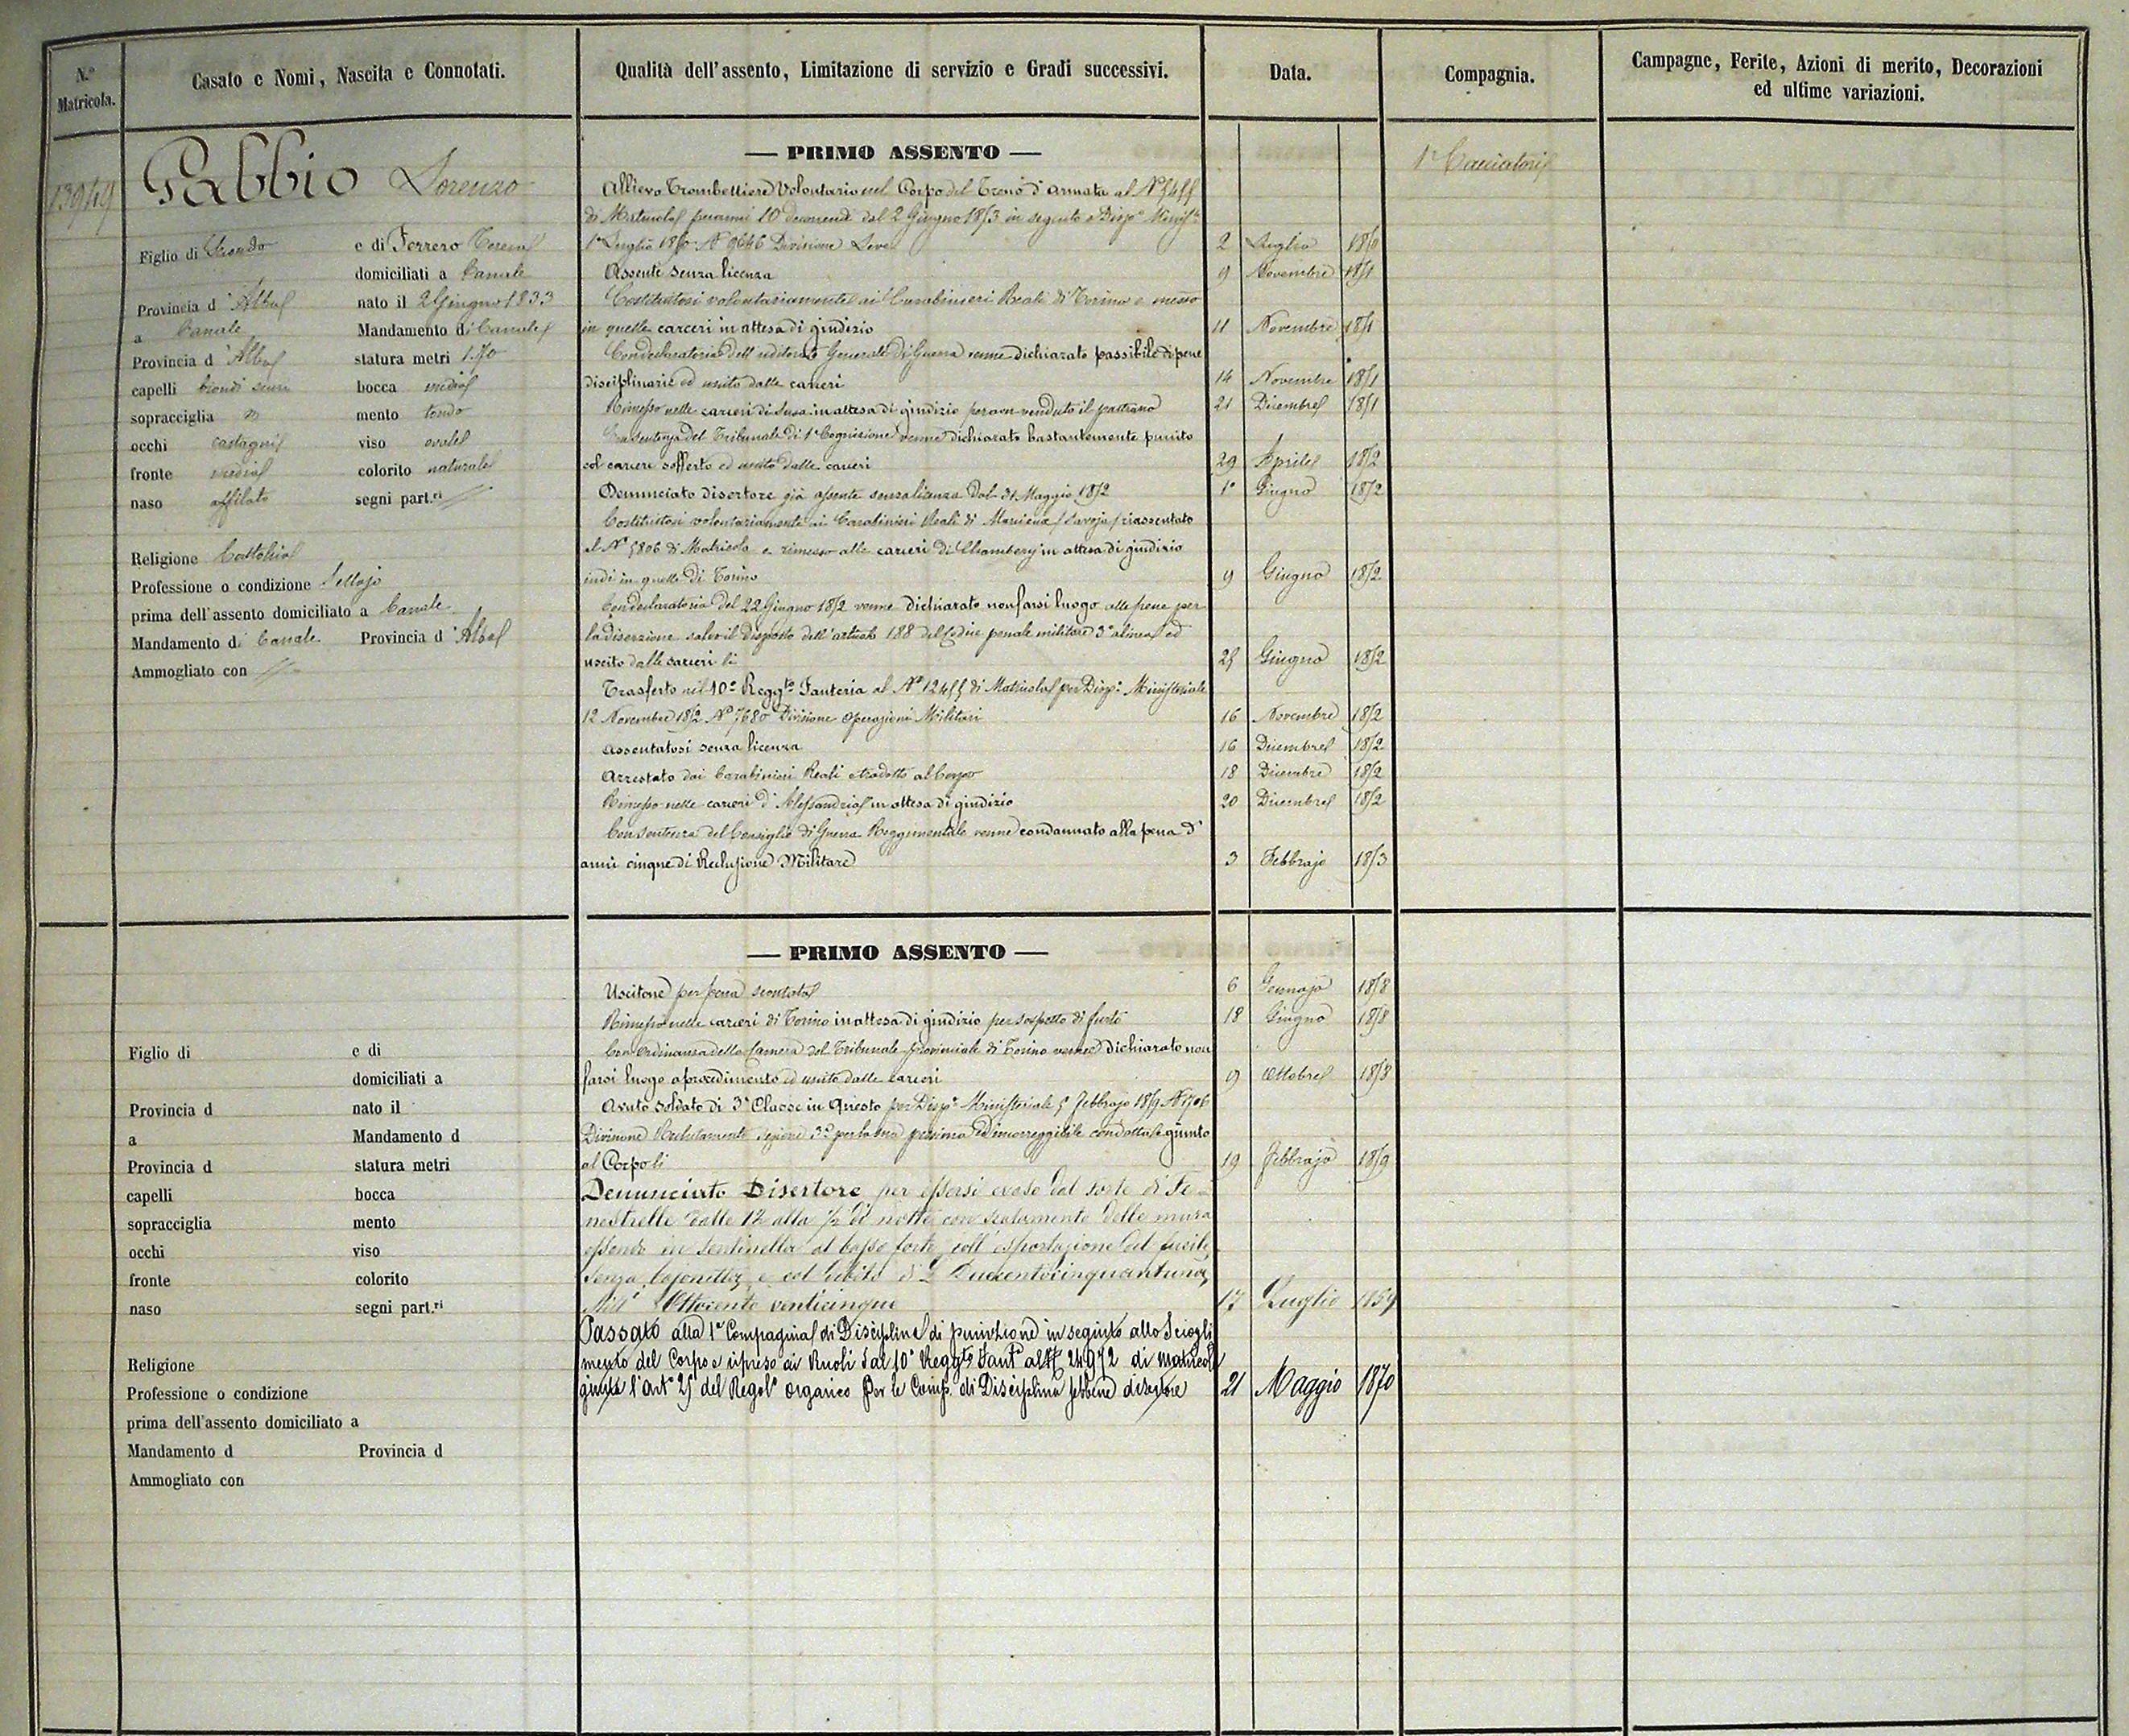 N.° Matricola.
Casato e Nomi, Nascita e Connotati.
Qualità dell'assento, Limitazione di servizio e Gradi successivi.
Data.
Compagnia.
Campagne, Ferite, Azioni di merito, Decorazioni
ed ultime variazioni.
13949
Gabbio Lorenzo
Figlio di e di Ferrero Teresa
domiciliati a Canale
Provincia d'Alba nato il 2 Giugno 1833
a Canale Mandamento di Canale
Provincia d'Alba statura metri 1.70
capelli biondi scuri bocca media
sopracciglia m mento tondo
occhi castagni viso ovale
fronte media colorito naturale
naso affilato segni part.ri //
Religione Cattolica
Professione o condizione Sellajo
prima dell'assento domiciliato a Canale
Mandamento di Canale Provincia d'Alba
Ammogliato con //
— PRIMO ASSENTO —
1° Cacciatori
Allievo Trombettiere Volontario nel Corpo del Treno d'armata al N° 5455
di Matricola per anni 10 decorrendi dal 2 Giugno 1853 in seguito a Disp.e Minist.le
1° Luglio 1850 N° 9646 Divisione Leve 2 Luglio 1850
Assente senza licenza 9 Novembre 1851
Costituitosi volontariamente ai Carabinieri Reali di Torino e messo
in quelle carceri in attesa di giudizio 11 Novembre 1851
Con declaratoria dell'uditorato Generale di Guerra venne dichiarato passibile di pene
disciplinarie ed uscito dalle carceri 14 Novembre 1851
Rimesso nelle carceri di Susa in attesa di giudizio per aver venduto il pastrano 21 Dicembre 1851
Con sentenza del Tribunale di 1a Cognizione venne dichiarato bastantemente punito
col carcere sofferto ed uscito dalle carceri 29 Aprile 1852
Denunciato disertore già assente senza licenza dal 31 Maggio 1852 1° Giugno 1852
Costituitosi volontariamente ai Carabinieri Reali di (Savoja) riassentato
al N° 5806 di Matricola e rimesso alle carceri di Chambery in attesa di giudizio
indi in quelle di Torino 9 Giugno 1852
Con declaratoria del 22 Giugno 1852 venne dichiarato non farsi luogo alle pene per
la diserzione salvo il disposto dell'articolo 188 del Codice penale militare 3° alinea ed
uscito dalle carceri li 25 Giugno 1852
Trasferto nel 10° Regg.to Fanteria al N° 12455 di Matricola per Disp.e Ministeriale
12 Novembre 1852 N° 7680 Divisione Operazioni Militari 16 Novembre 1852
Assentatosi senza licenza 16 Dicembre 1852
Arrestato dai Carabinieri Reali e tradotto al Corpo 18 Dicembre 1852
Rimesso nelle carceri d'Alessandria in attesa di giudizio 20 Dicembre 1852
Con sentenza del Consiglio di Guerra Reggimentale venne condannato alla pena d'
anni cinque di Reclusione Militare 3 Febbrajo 1853
— PRIMO ASSENTO —
Uscitone per pena scontata 6 Gennajo 1858
Rimesso nelle carceri di Torino in attesa di giudizio per sospetto di furto 18 Giugno 1858
Con ordinanza della Camera del Tribunale provinciale di Torino venne dichiarato non
farsi luogo a procedimento ed uscito dalle carceri 9 Ottobre 1858
Avuto soldato di 3a Classe in questo per Disp.e Ministeriale 5 Febbrajo 1859 N° 1706
Divisione Reclutamento Sezione 3a per la sua pessima ed incorreggibile condotta e giunto
al Corpo li 19 Febbrajo 1859
Denunciato Disertore per essersi evaso dal forte di Fe-
nestrelle dalle 12 alla 1/2 di notte con scalamento delle mura
essendo in sentinella al basso forte, coll'esportazione del fucile,
senza bajonetta, e col debito di L. Duecentocinquantuna,
Mill.i Ottocento venticinque 17 Luglio 1859
Passato alla 1a Compagnia di Disciplina di punizione in seguito allo Sciogli
mento del Corpo e ripreso ai Ruoli dal 10° Regg.to Fant.a al N° 24972 di matricola
giusta l'art.° 25 del Regol.° organico per le Comp. di Disciplina sebbene disertore 21 Maggio 1870
Figlio di e di
domiciliati a
Provincia d nato il
a Mandamento d
Provincia d statura metri
capelli bocca
sopracciglia mento
occhi viso
fronte colorito
naso segni part.ri
Religione
Professione o condizione
prima dell'assento domiciliato a
Mandamento d Provincia d
Ammogliato con